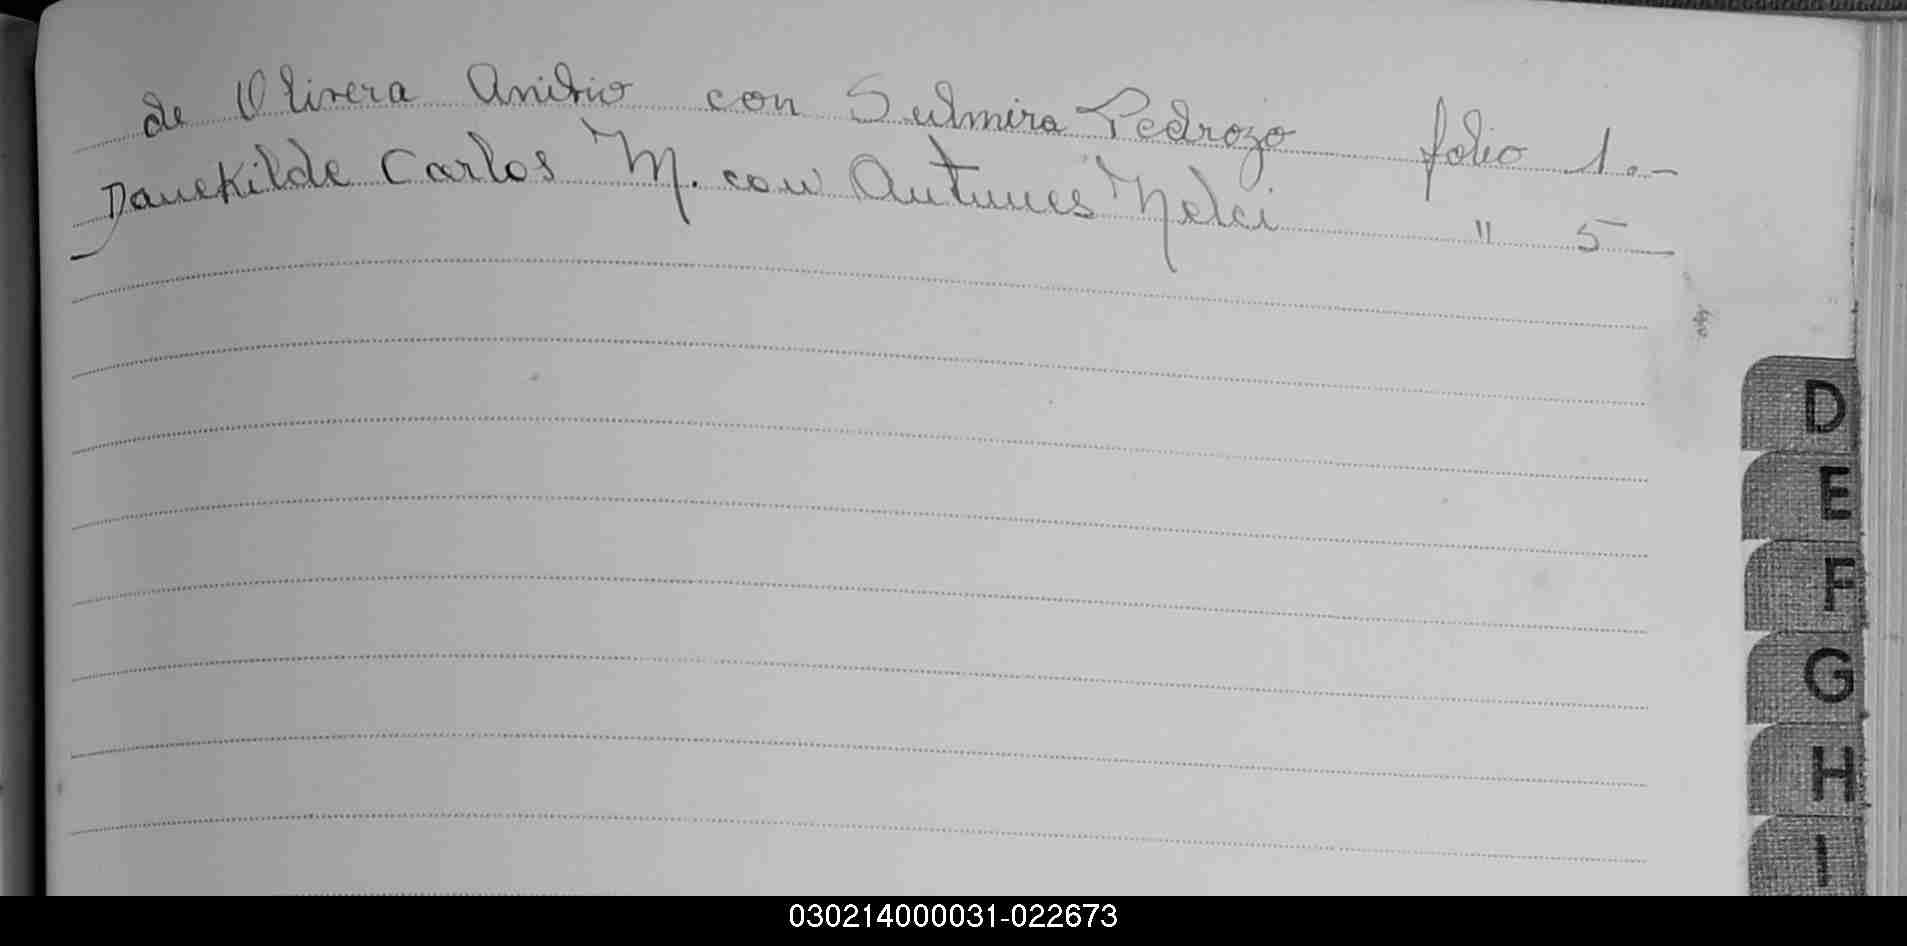 de Olivera Anibio con Sulmira Pedrozo folio 1.-
Danekilde Carlos M. con Antunes Nelci " 5-
D
E
F
G
H
I
030214000031-022673